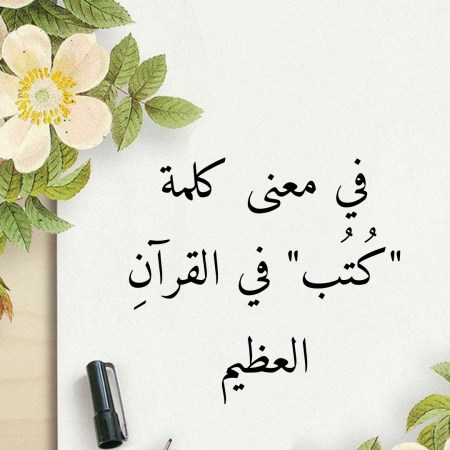 في معنى كلمة
"كُتُب" في القرآنِ
العظيم